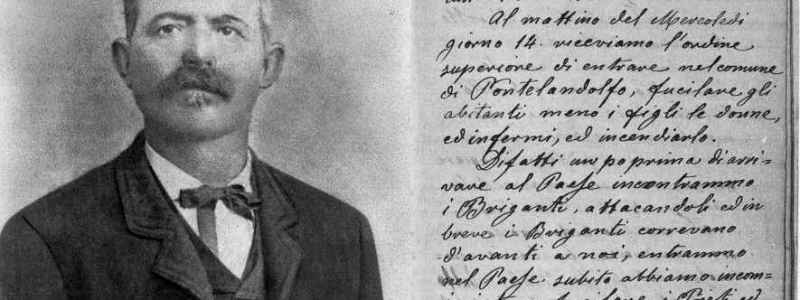 Al mattino del Mercoledi
giorno 14. riceviamo l'ordine
superiore di entrare nel comune
di Pontelandolfo, fucilare gli
abitanti meno i figli le donne,
ed infermi, ed incendiarlo.
Difatti un po prima di arri-
vare al Paese incontrammo
i Briganti, attacandoli ed in
breve i Briganti correvano
d'avanti a noi, entrammo
nel Paese subito abbiamo incom-